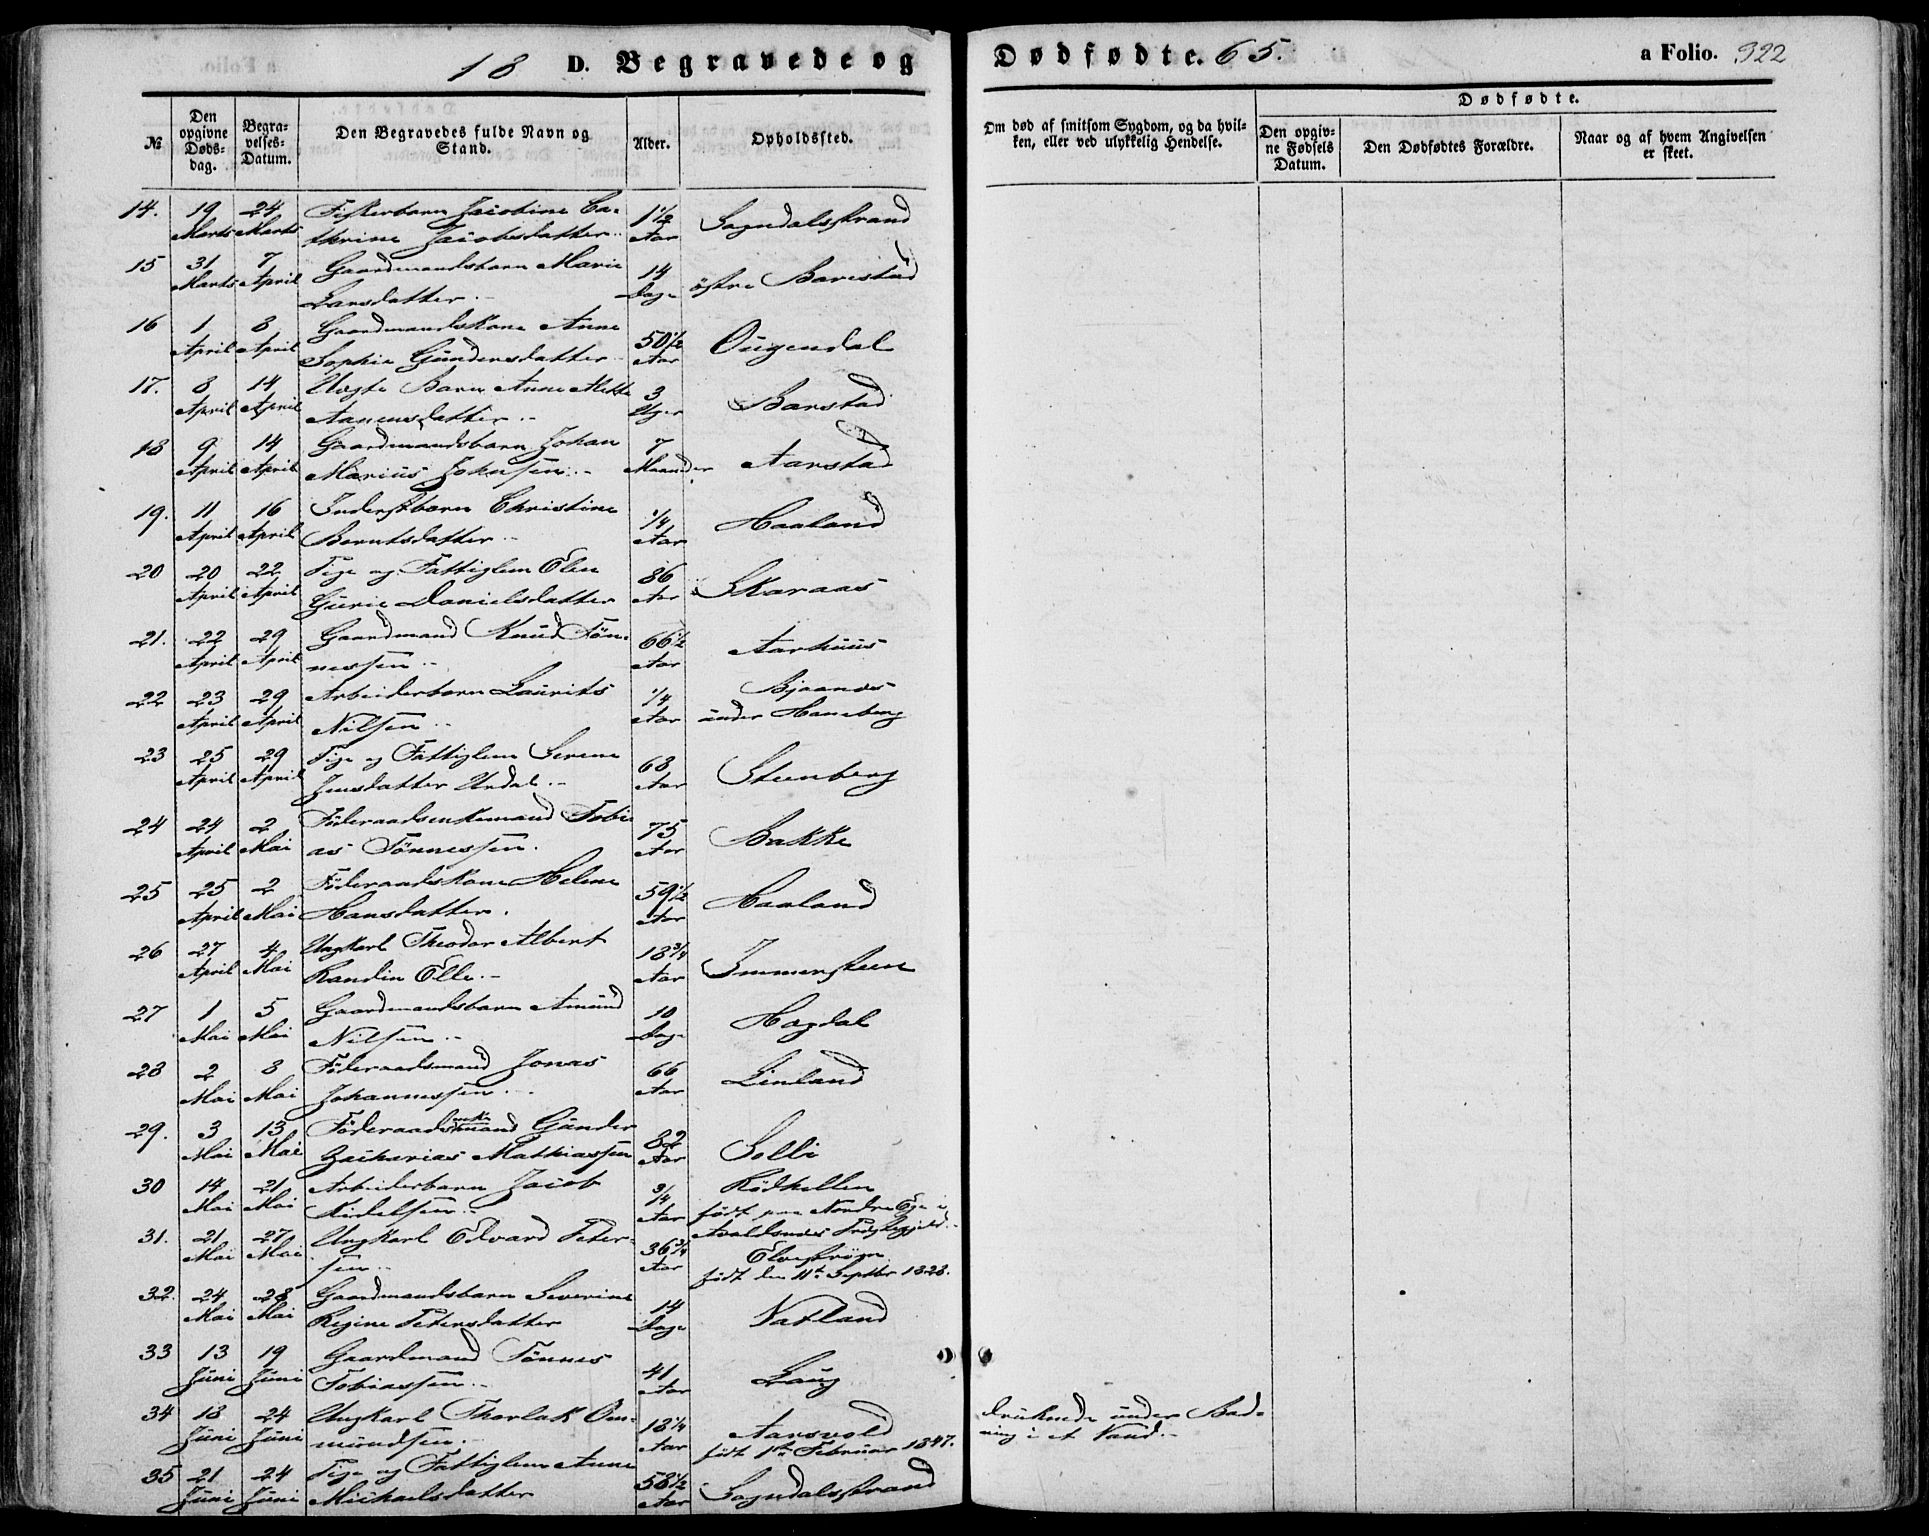 18 D. Begravede og Dødfødte. 65. a Folio. 322
№
Den opgivne Døds-dag.
Begra-velses-Datum.
Den Begravedes fulde Navn og Stand.
Alder.
Opholdssted.
Om død af smitsom Sygdom, og da hvil-
ken, eller ved ulykkelig Hendelse.
Dødfødte.
Den opgiv-ne Fødsels Datum.
Den Dødfødtes Forældre.
Naar og af hvem Angivelsen er skeet.
14. 19 Marts 24 Marts Fiskerbarn Jacobine Ca-
thrine Jacobsdatter 1½ Aar Sogndalsstrand
15 31 Marts 7 April Gaardmandsbarn Marie
Larsdatter 14 Dage östre Barestad
16 1 April 8 April Gaardmandskone Anne
Sophie Gundersdatter 50½ Aar Ougendal
17. 8 April 14 April Uægte Barn Anne Mette
Aanensdatter 3 Uger Barstad
18 9 April 14 April Gaardmandsbarn Johan
Marius Johnsen 7 Maaneder Aarstad
19. 11 April 16 April Inderstbarn Christine
Berntsdatter ¼ Aar Haaland
20 20 April 22 April Pige og Fattiglem Elen
Gurie Danielsdatter 86 Aar Skaraas
21. 22 April 29 April Gaardmand Knud Tön-
nessen 66½ Aar Aarhuus
22 23 April 29 April Arbeiderbarn Laurits
Nilsen ¼ Aar Bjaanes under Haneberg
23 25 April 29 April Pige og Fattiglem Serene
Jensdatter Urdal 68 Aar Steenberg
24 24 April 2 Mai Föderaadsenkemand Tobi-
as Tönnessen. 75 Aar Bakke
25 25 April 2 Mai Föderaadskone Helene
Hansdatter. 59½ Aar Haaland
26 27 April 4 Mai Ungkarl Theodor Albert
Randin Elle 18¾ Aar Immersteen
27 1 Mai 5 Mai Gaardmandsbarn Amund
Nilsen 10 Dage Hogdal
28 2 Mai 8 Mai Föderaadsmand Jonas
Johannessen 66 Aar Linland
29. 3 Mai 13 Mai Föderaadsenkemand Gunder
Zacharias Mathiassen 82 Aar Solli
30 14 Mai 21 Mai Arbeiderbarn Jacob
Nielsen ¾ Aar Rödhellen
födt paa Nordre Eje i
Avaldsnes Præstegjeld
31. 21 Mai 27 Mai Ungkarl Edvard Peter-
sen 36¾ Aar Elvestrøm
födt den 11te Septbr 1828.
32. 24 Mai 28 Mai Gaardmandsbarn Severine
Regine Petersdatter 14 Dage Natland
33 13 Juni 19 Juni Gaardmand Tönnes
Tobiassen 41 Aar Laug
34 18 Juni 24 Juni Ungkarl Thorlak Om-
mundsen. 18¼ Aar Aarsvold
födt 1te Februar 1847. Druknede under Bad-
ning i et Vand.
35 21 Juni 24 Juni Pige og Fattiglem Anne
Michaelsdatter 58½ Aar Sogndalsstrand